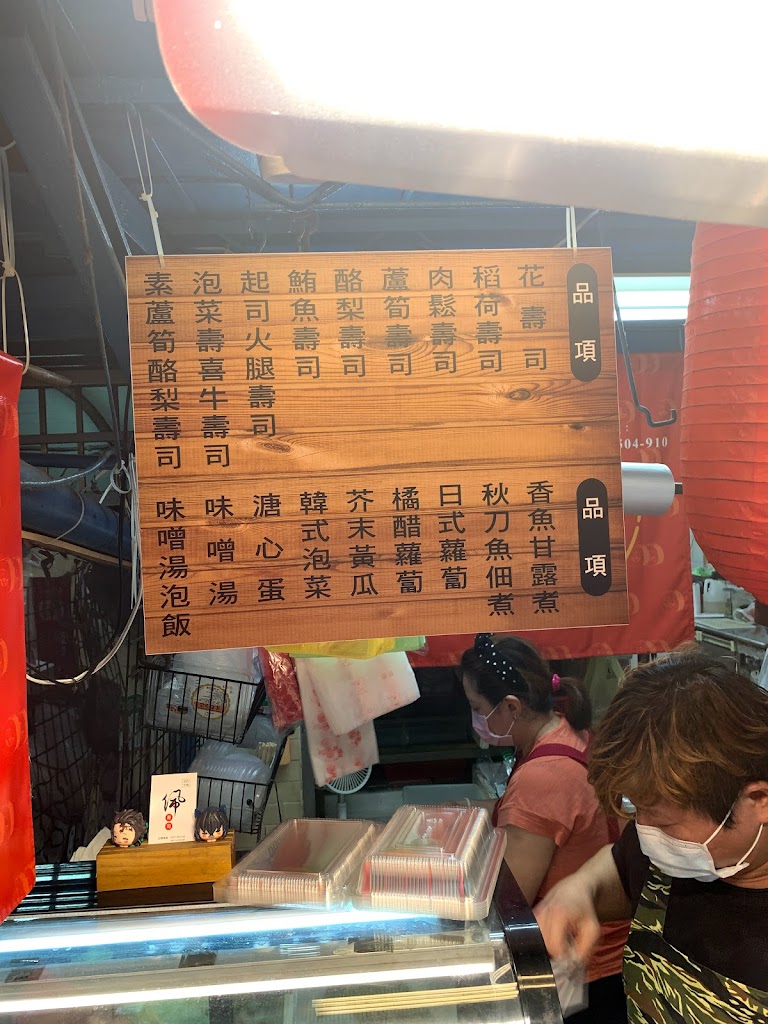 品項
花壽司
稻荷壽司
肉鬆壽司
蘆筍壽司
酪梨壽司
鮪魚壽司
起司火腿壽司
泡菜壽喜牛壽司
素蘆筍酪梨壽司
品項
香魚甘露煮
秋刀魚佃煮
日式蘿蔔
橘醋蘿蔔
芥末黃瓜
韓式泡菜
溏心蛋
味噌湯
味噌湯泡飯
504-910
佩